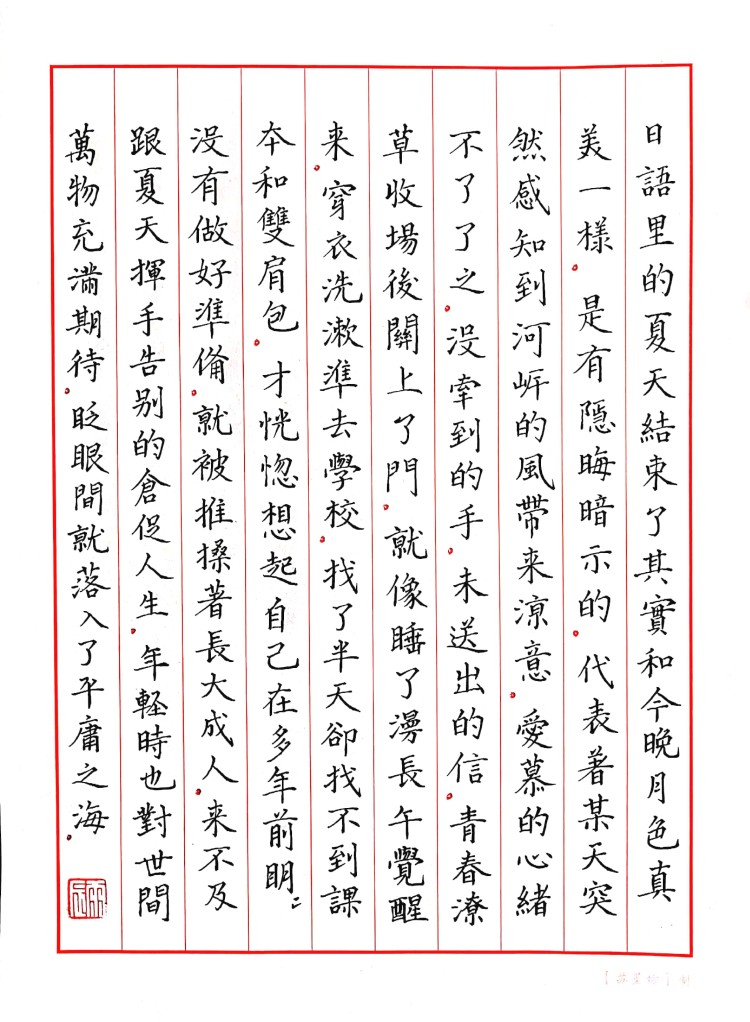 日語里的夏天結束了其實和今晚月色真
美一樣。是有隱晦暗示的。代表著某天突
然感知到河岍的風帶来涼意。愛慕的心緒
不了了之。没牽到的手。未送出的信。青春潦
草收場後關上了門。就像睡了漫長午覺醒
来。穿衣洗漱準去學校。找了半天卻找不到課
本和雙肩包。才恍惚想起自己在多年前明〻
没有做好準備。就被推搡著長大成人。来不及
跟夏天揮手告别的倉促人生。年輕時也對世間
萬物充滿期待。眨眼間就落入了平庸之海。